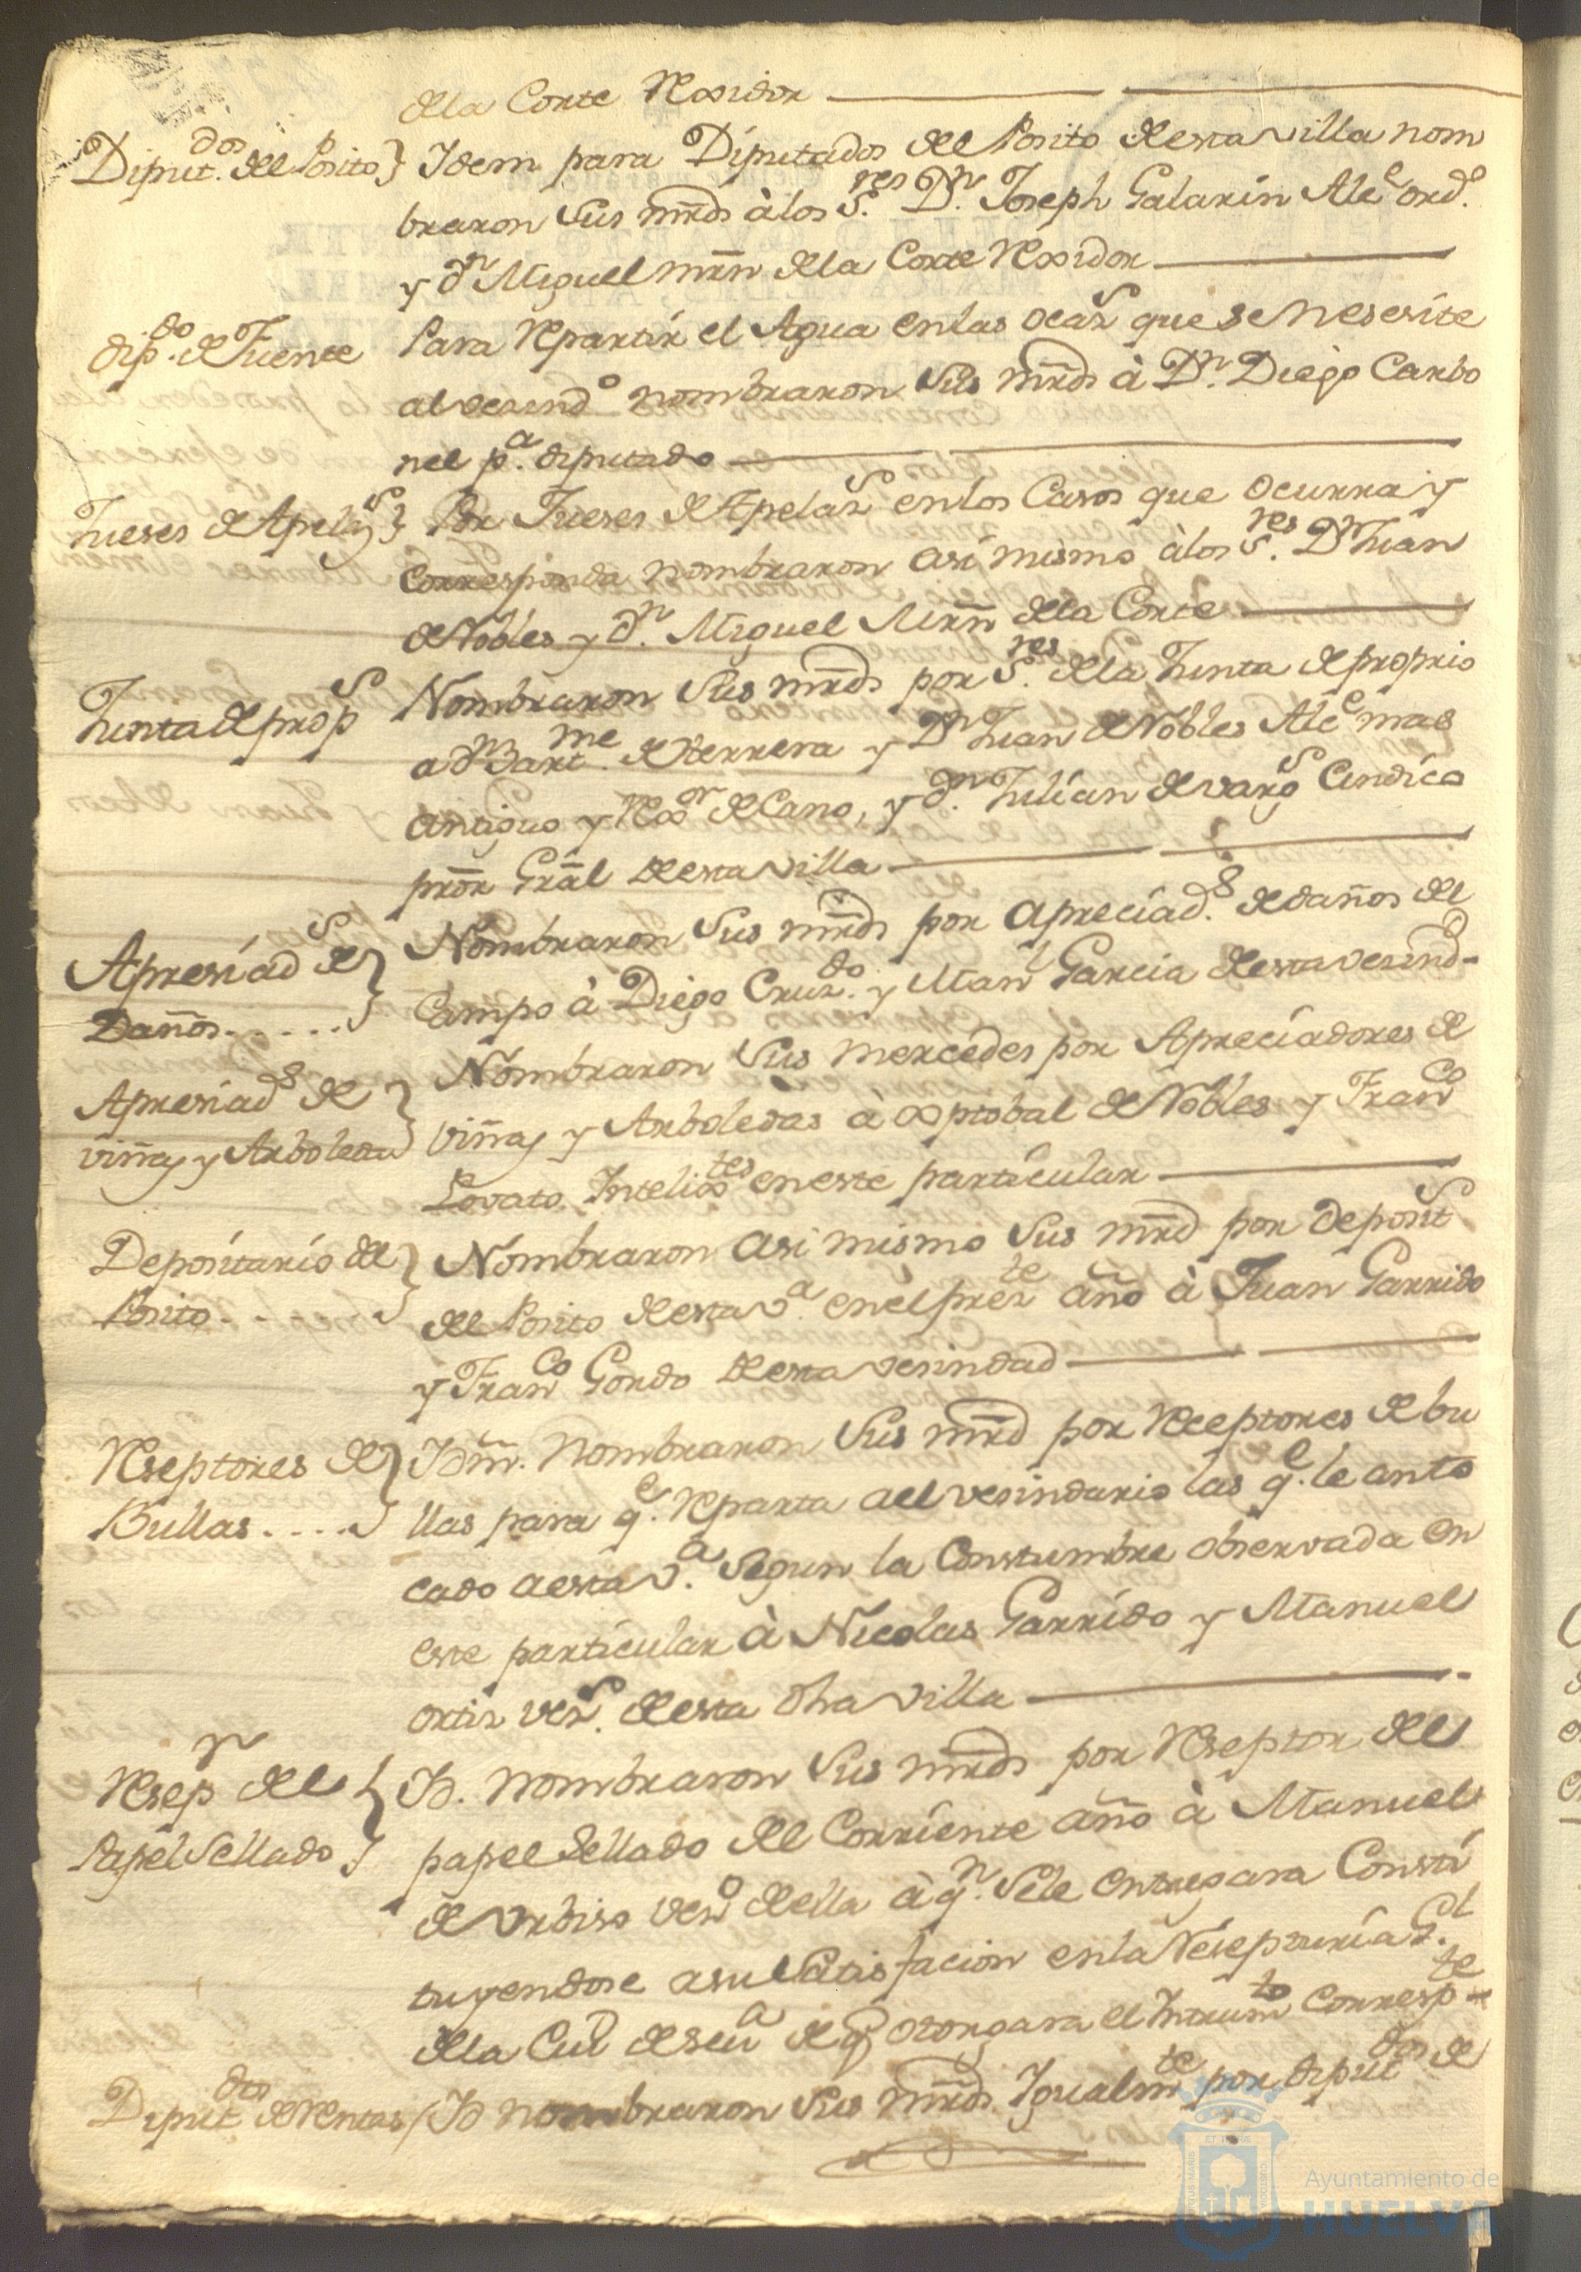 dela Corte Rexidor
Diput.dos del Posito } Idem para Diputados del Posito desta villa nom
braron sus mrds à los S.res D.n Joseph Galarin Alc.e ord.o
y d.n Miguel mrñ dela Corte Rexidor
dip.do de Fuente Para Repartir el Agua enlas ocaz.s que se neserite
al vesind.o nombraron sus mrds à D.n Diego Carbo
nel p.a diputado
Jueses de Apelaz.s } Por Jueses de Apelaz.s enlos Casos que ocurra y
corresponda nombraron asi mismo àlos S.res D.n Juan
de Nobles y d.n Miguel Mrñ dela Corte
Junta de prop.s Nombraron sus mrds por S.res dela Junta de proprio
a d.n Bart.me de Herrera y D.n Juan de Nobles Alc.e mas
antiguo y Rex.or de Cano, y d.n Julian de varg.s Cindico
prõr Grãl desta villa
Apresiad.s de } Nombraron sus mrds por apreciad.s de daños del
Daños..... } Campo à Diego Cruz.do y Man.l Garcia desta vesind.d
Apresiad.s de } Nombraron sus mercedes por Apreciadores de
viñas y Arboledas } viñas y Arboledas à Xptobal de Nobles y Fran.co
Lovato Intelix.tes en este particular
Depositario del } Nombraron asi mismo sus mrd por deposit.s
Posito... } del Posito desta v.a enel prez.te año à Juan Garrido
y Fran.co Gordo desta vesindad
Reseptores de } Idm. nombraron sus mrd por Receptores de bu
Bullas.... } llas para q.e Reparta al vesindario las q.e le anto
cado aesta v.a segun la Constumbre observada en
este particular à Nicolas Garrido y Manuel
ortiz vez.s desta dha villa
Resep.r del } Id. nombraron sus mrds por Reseptor del
Papel Sellado } papel Sellado del Corriente año à Manuel
de vrbiso ves.o della à q.n sele entregara Consti
tuyendose asu satisfacion enla Resepturia G.l
dela Ciu.d de Seu.a de q otorgara el Instrum.to corresp.te
Diput.dos de Rentas / Id nombraron sus mrds. Igualm.te por diput.dos de
Ayuntamiento de
HUELVA